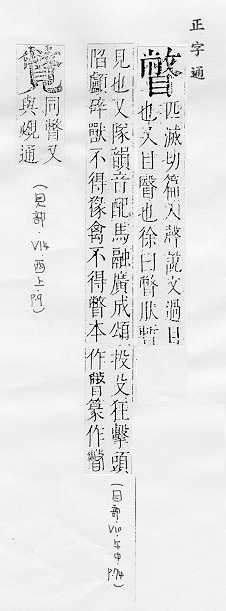 正字通
瞥匹滅切篇入聲說文過目
也又目翳也徐曰瞥肰暫
見也又隊韻音配馬融廣成頌投殳狂擊頭
陷顱碎獸不得猭禽不得瞥本作篆作
(目部．V10．午中．P.74)
同瞥又
與覕通
(見部．V14．酉上．P.9)